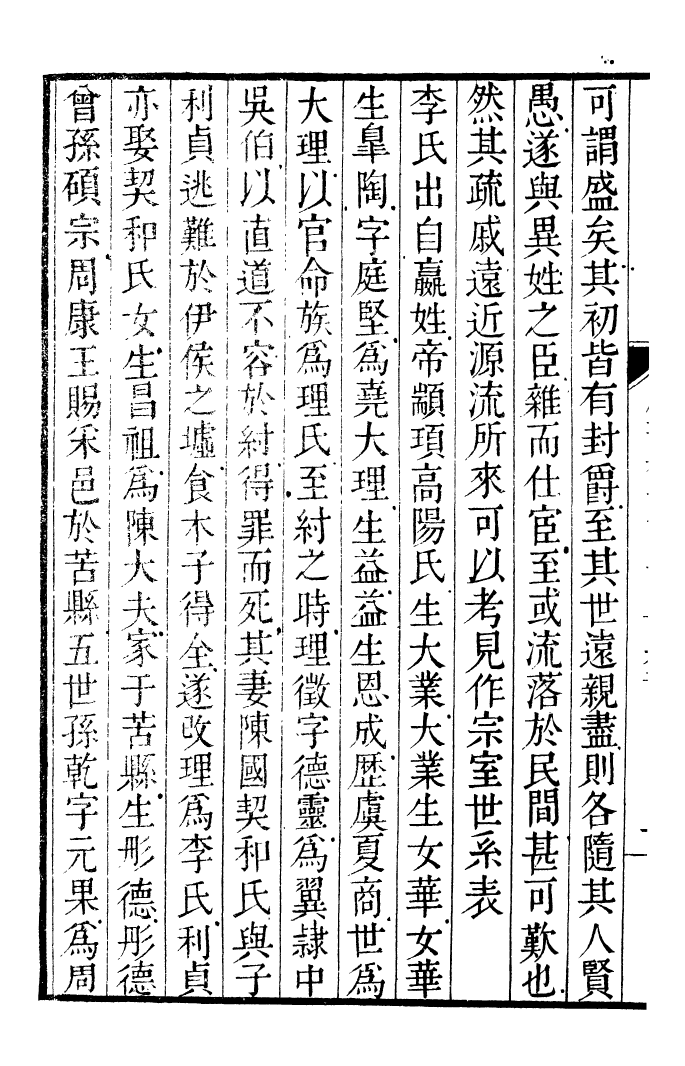 可謂盛矣其初皆有封爵至其世遠親盡則各隨其人賢
愚遂與異姓之臣雜而仕宦至或流落於民間甚可歎也
然其疏戚遠近源流所來可以考見作宗室世系表
李氏出自嬴姓帝顓頊高陽氏生大業大業生女華女華
生臯陶字庭堅為堯大理生益益生恩成歷虞夏商世為
大理以官命族為理氏至紂之時理徵字德靈為翼隷中
吳伯以直道不容於紂得罪而死其妻陳國契和氏與子
利貞逃難於伊侯之墟食木子得全遂改理為李氏利貞
亦娶契和氏女生昌祖為陳大夫家于苦縣生彤德彤德
曾孫碩宗周康王賜采邑於苦縣五世孫乾字元果為周